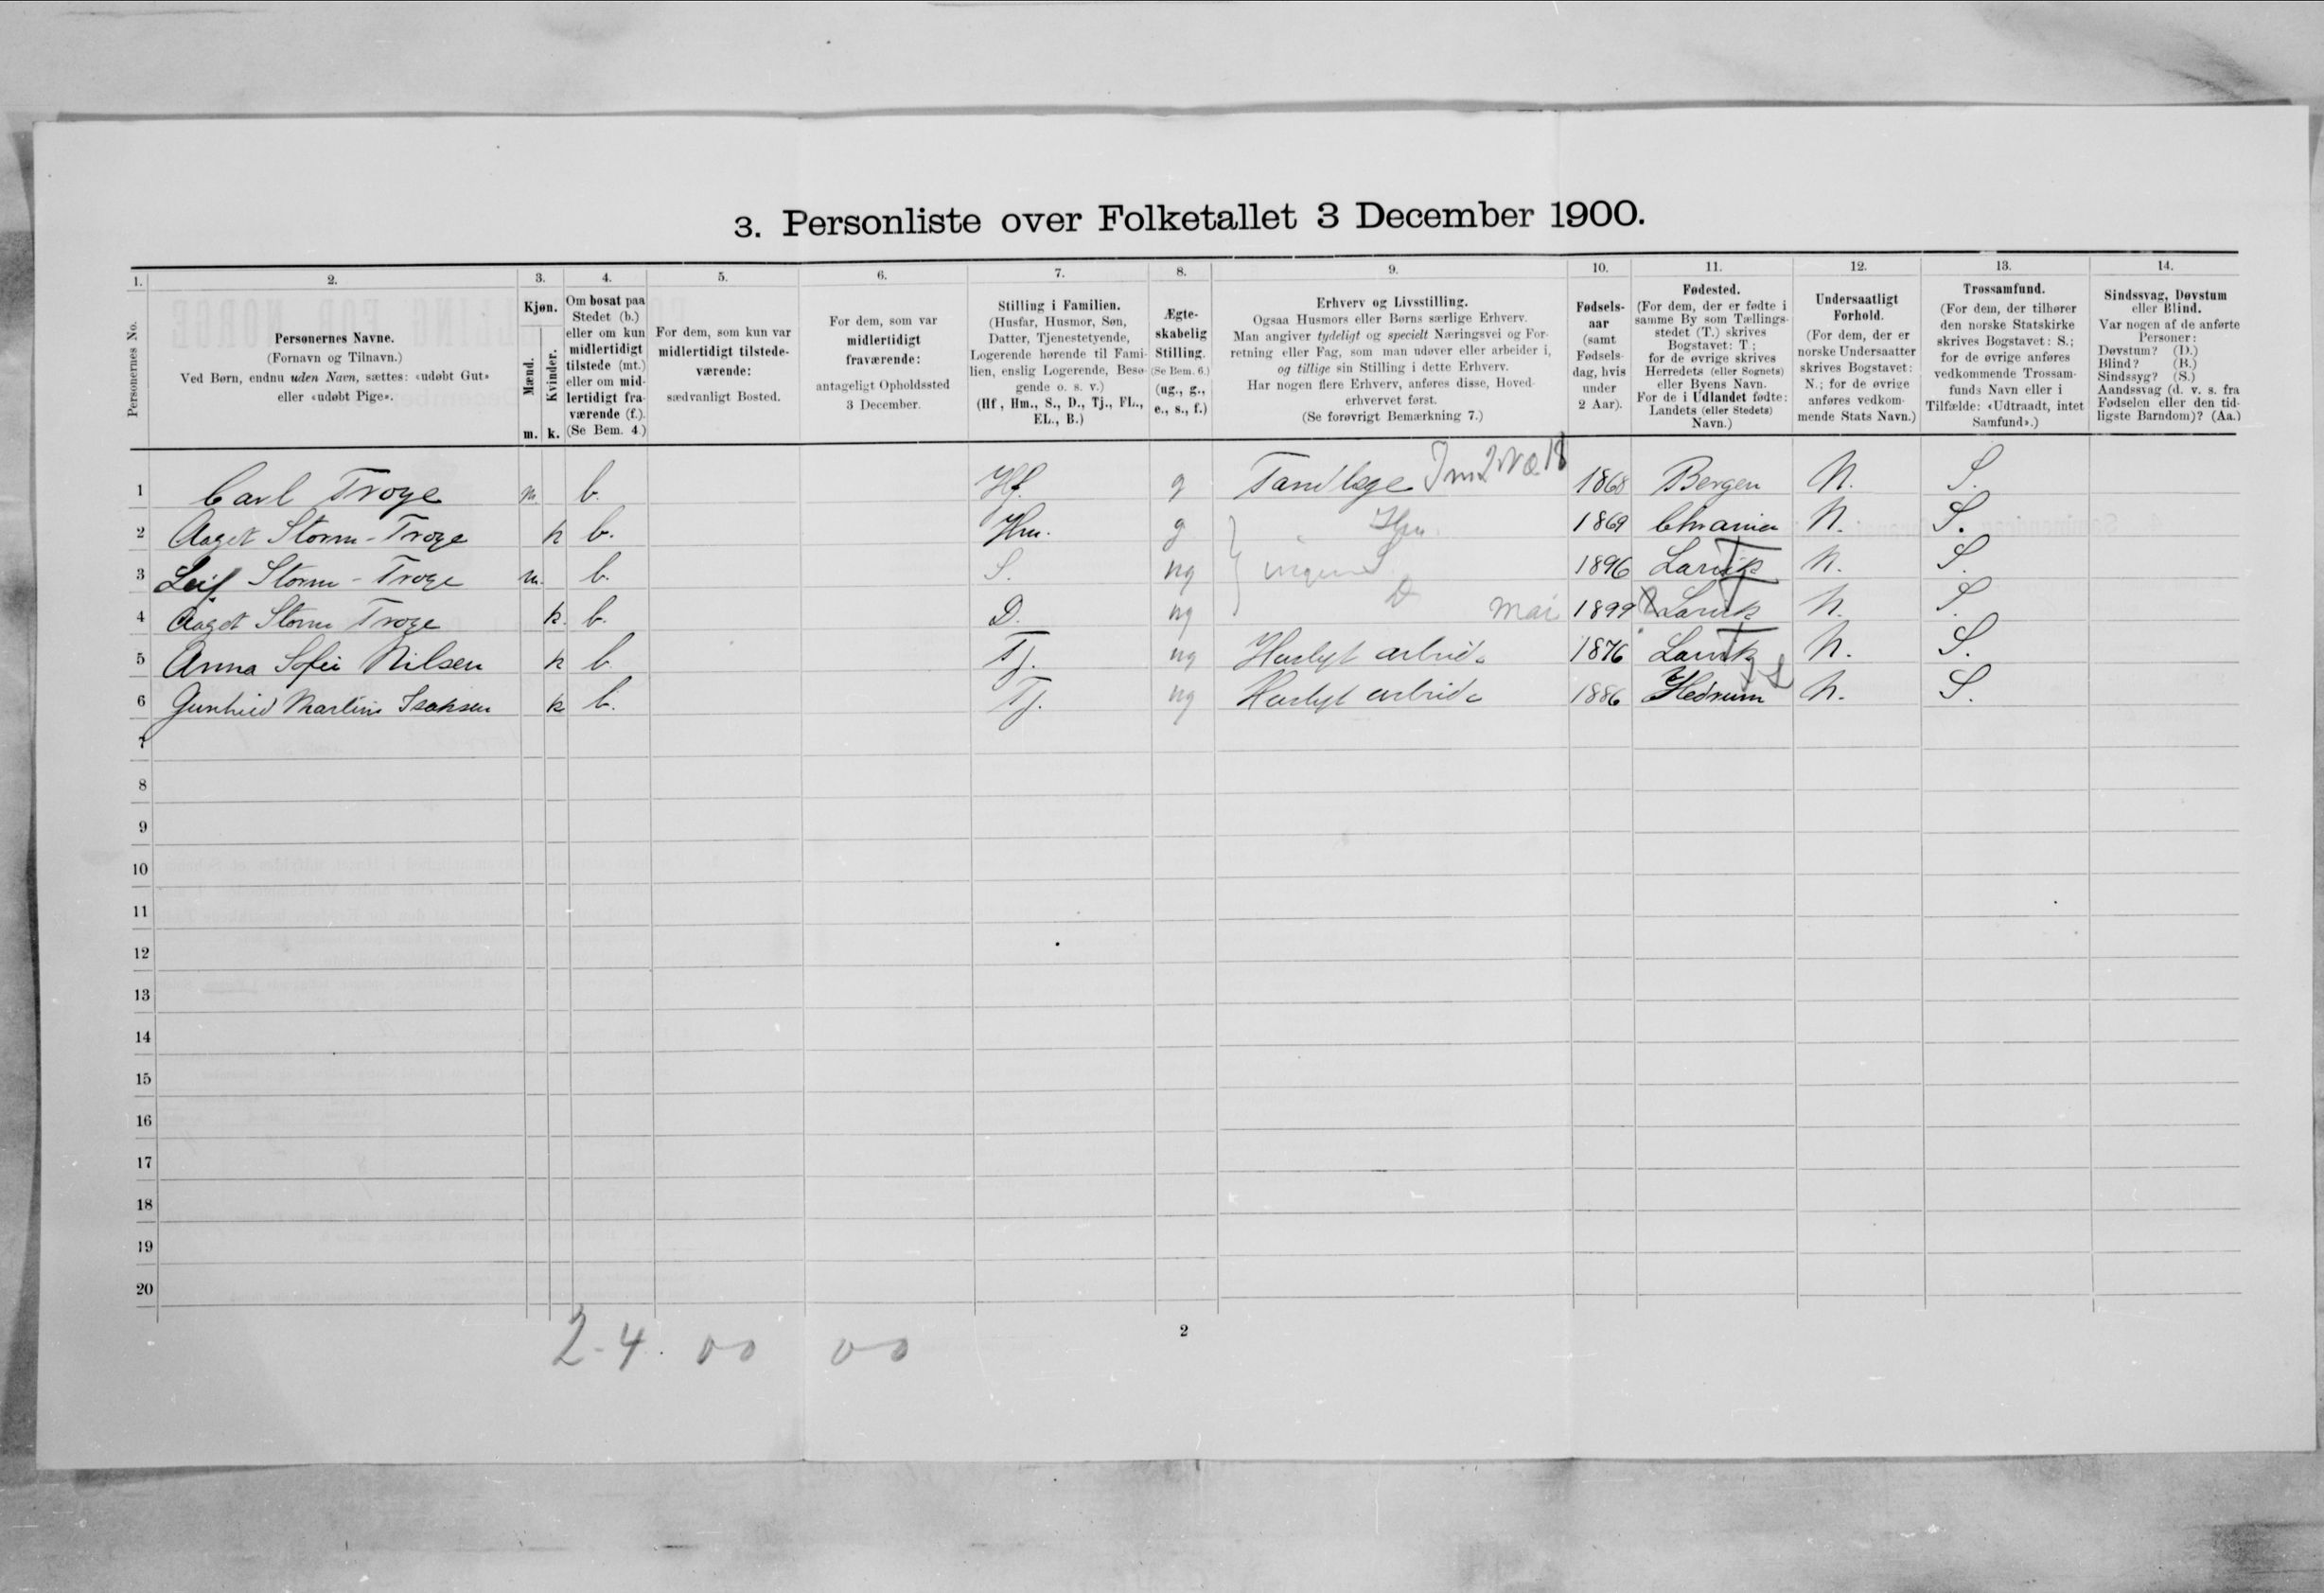 3. Personliste over Folketallet 3 December 1900.
1. 2. 3. 4. 5. 6. 7. 8. 9. 10. 11. 12. 13. 14.
Personernes No.
Personernes Navne.
(Fornavn og Tilnavn.)
Ved Børn, endnu uden Navn, sættes: «udøbt Gut»
eller «udøbt Pige».
Kjøn.
Mænd.
Kvinder.
m. k.
Om bosat paa
Stedet (b.)
eller om kun
midlertidigt
tilstede (mt.)
eller om mid-
lertidigt fra-
værende (f.).
(Se Bem. 4.)
For dem, som kun var
midlertidigt tilstede-
værende:
sædvanligt Bosted.
For dem, som var
midlertidigt
fraværende:
antageligt Opholdssted
3 December.
Stilling i Familien.
(Husfar, Husmor, Søn,
Datter, Tjenestetyende,
Logerende hørende til Fami-
lien, enslig Logerende, Besø-
gende o. s. v.)
(Hf, Hm., S., D., Tj., FL.,
EL., B.)
Ægte-
skabelig
Stilling.
(Se Bem. 6.)
(ug., g.,
e., s., f.)
Erhverv og Livsstilling.
Ogsaa Husmors eller Børns særlige Erhverv.
Man angiver tydeligt og specielt Næringsvei og For-
retning eller Fag, som man udøver eller arbeider i,
og tillige sin Stilling i dette Erhverv.
Har nogen flere Erhverv, anføres disse, Hoved-
erhvervet først.
(Se forøvrigt Bemærkning 7.)
Fødsels-
aar
(samt
Fødsels-
dag, hvis
under
2 Aar).
Fødested.
(For dem, der er fødte i
samme By som Tællings-
stedet (T.) skrives
Bogstavet: T;
for de øvrige skrives
Herredets (eller Sognets)
eller Byens Navn.
For de i Udlandet fødte:
Landets (eller Stedets)
Navn.)
Undersaatligt
Forhold.
(For dem, der er
norske Undersaatter
skrives Bogstavet:
N.; for de øvrige
anføres vedkom-
mende Stats Navn.)
Trossamfund.
(For dem, der tilhører
den norske Statskirke
skrives Bogstavet: S.;
for de øvrige anføres
vedkommende Trossam-
funds Navn eller i
Tilfælde: «Udtraadt, intet
Samfund».)
Sindssvag, Døvstum
eller Blind.
Var nogen af de anførte
Personer:
Døvstum? (D.)
Blind? (B.)
Sindssyg? (S.)
Aandssvag (d. v. s. fra
Fødselen eller den tid-
ligste Barndom)? (Aa.)
1 Carl Troye m b. Hf. g Tandlæge 1868 Bergen N. S.
2 Aagot Storm-Troye k b. Hm. g Hm. 1869 Chrania N. S.
3 Leif Storm-Troye m. b. S. ug ingen S. 1896 Larvik T N. S.
4 Aagot Storm Troye k. b. D. ug D mai 1899 Larvik T N. S.
5 Anna Sofie Nilsen k b. Tj. ug Huslyt arbeide 1876 Larvik T N. S.
6 Gunhild Martine Isaksen k b. Tj. ug Huslyt arbeide 1886 Hedrum N. S.
7
8
9
10
11
12
13
14
15
16
17
18
19
20
2
2-4. 00 00